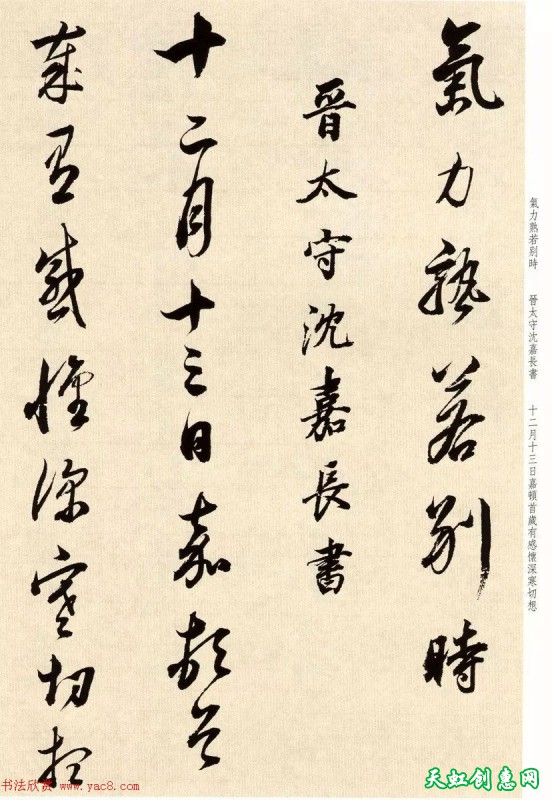 氣力孰若別時
晉太守沈嘉長書
十二月十三日嘉頓首
歲有感懷深寒切想
氣力熟若别時 晉太守沈嘉長書 十二月十三日嘉頓首歲有感懷深寒切想
书法欣赏 www.yac8.com
天虹创惠网